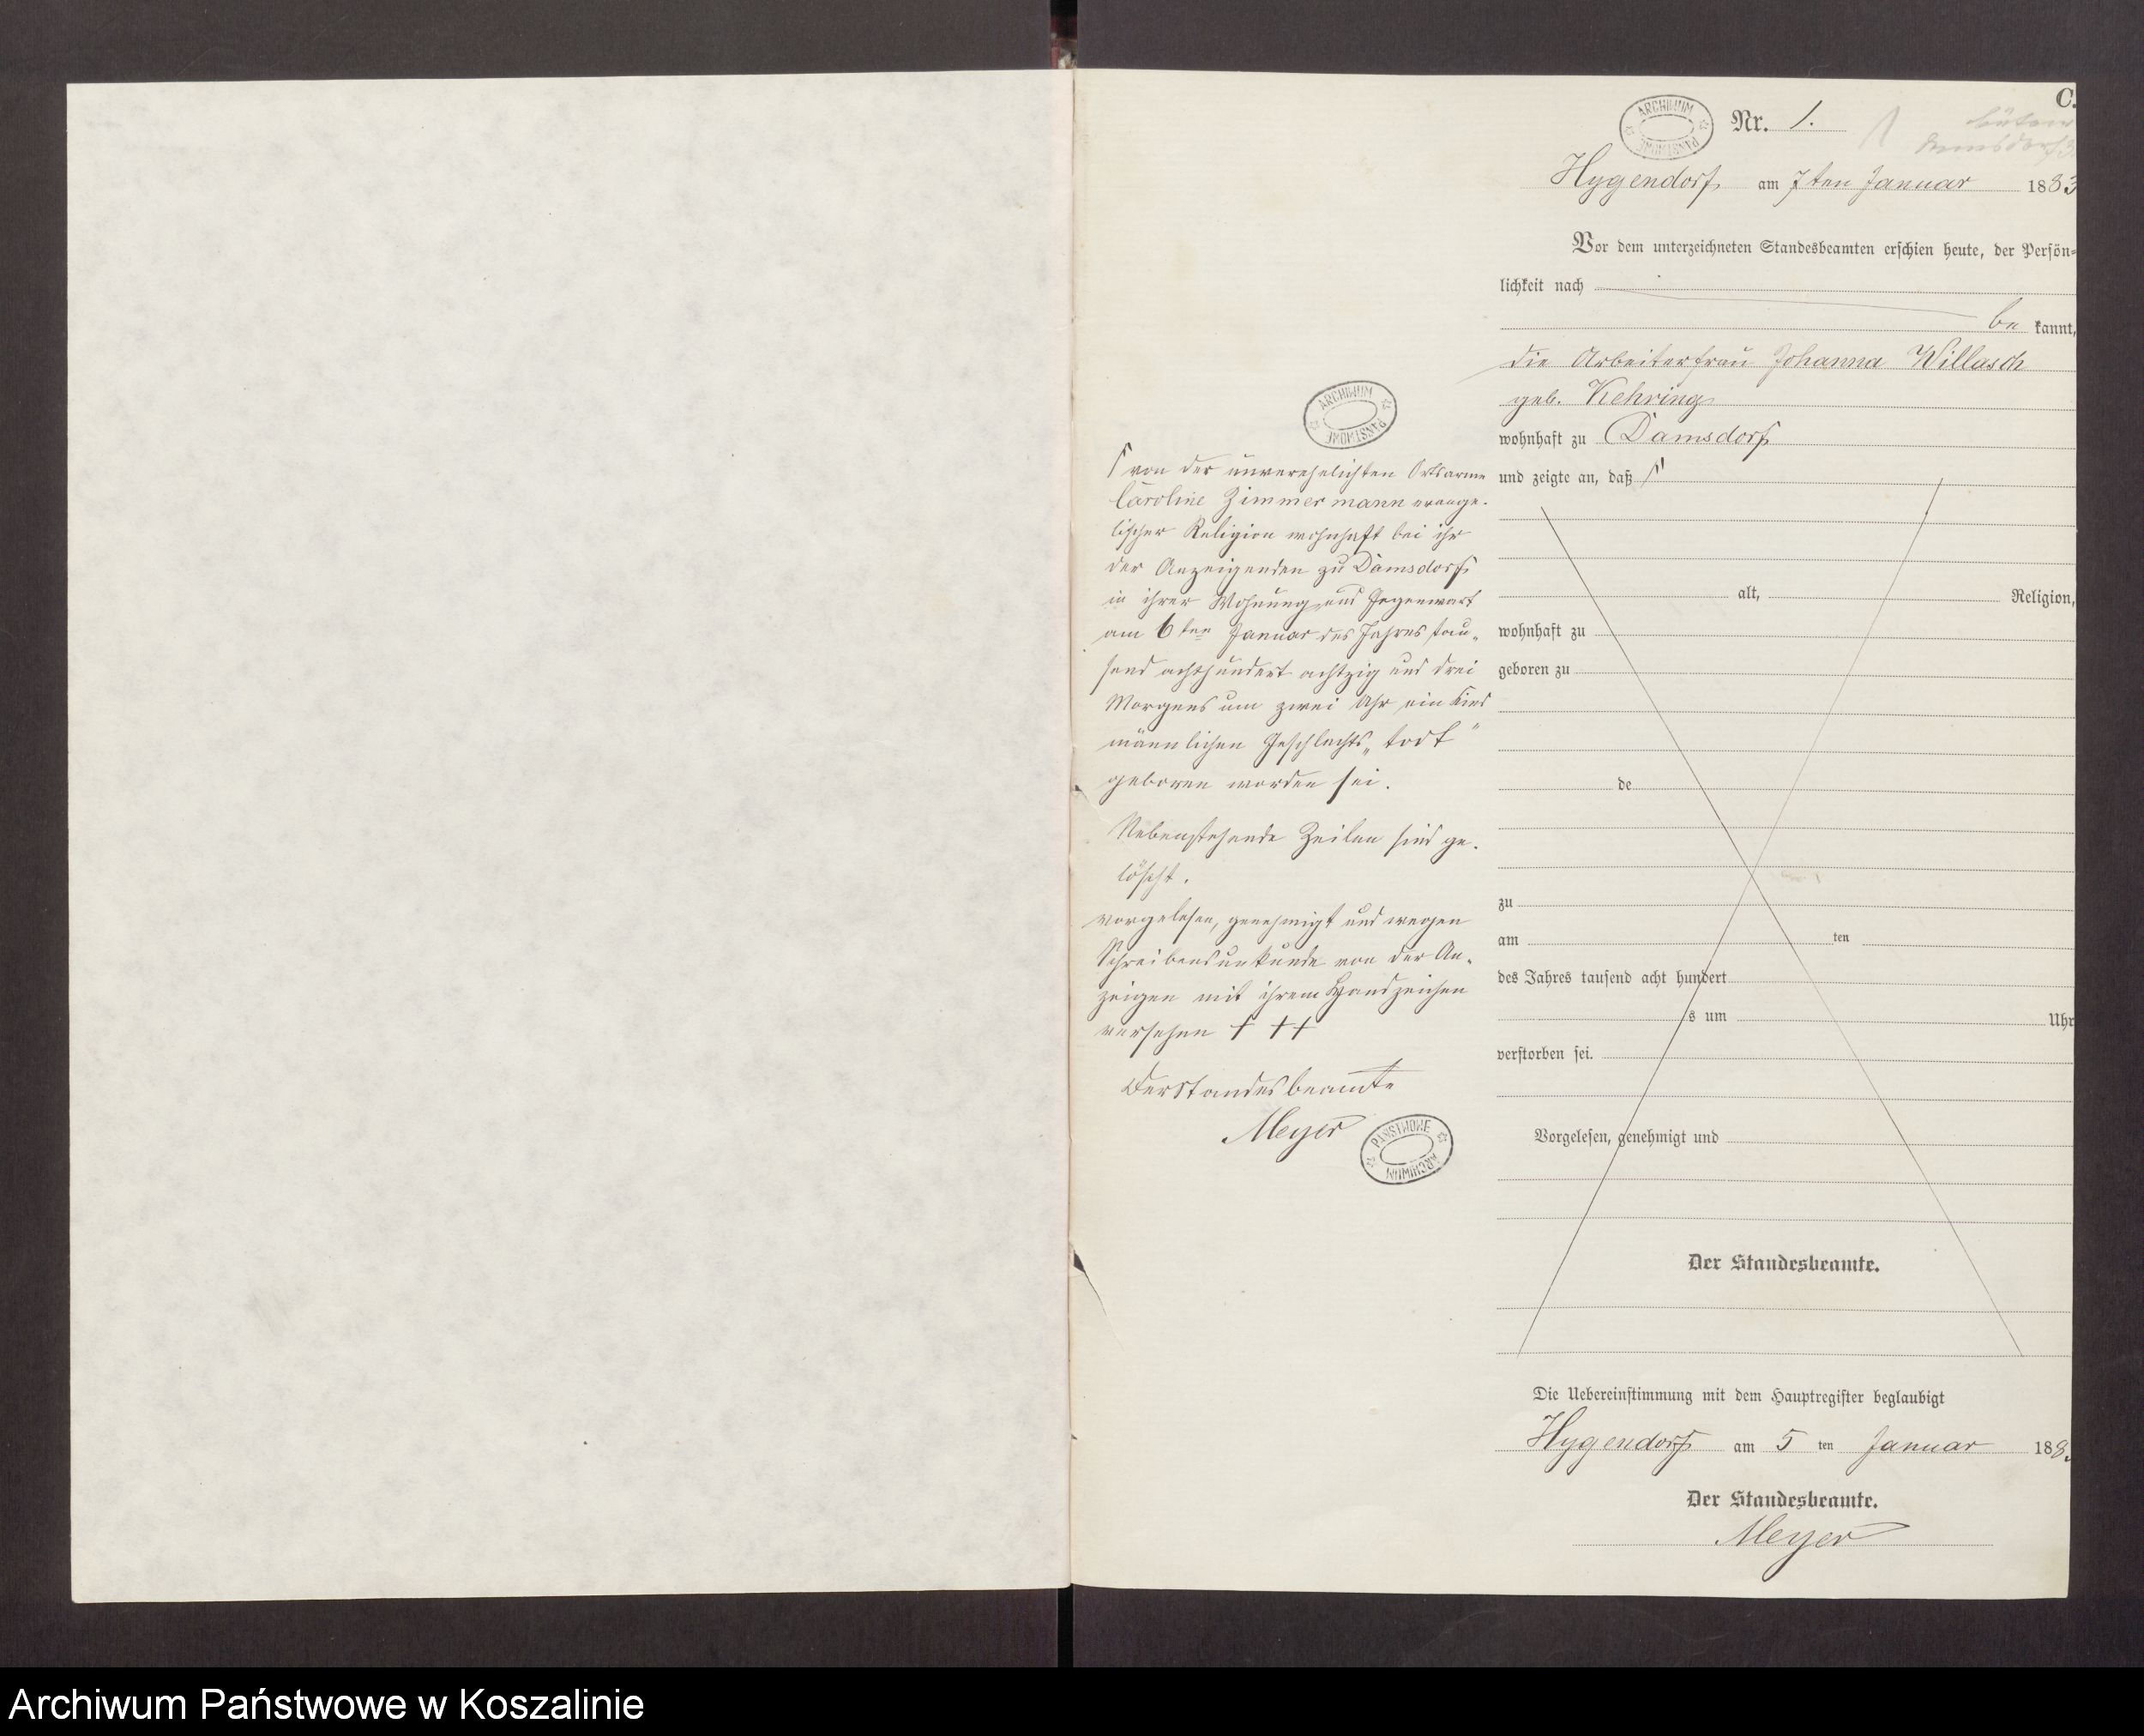 C.
Nr. 1.
Hygendorf am 7ten Januar 1883
Vor dem unterzeichneten Standesbeamten erschien heute, der Persön-
lichkeit nach
be kannt,
die Arbeiterfrau Johanna Willasch
geb. Kehring
wohnhaft zu Damsdorf
und zeigte an, daß ſ
alt, Religion,
wohnhaft zu
geboren zu
de
zu
am ten
des Jahres tausend acht hundert
s um Uhr
verstorben sei.
Vorgelesen, genehmigt und
Der Standesbeamte.
Die Uebereinstimmung mit dem Hauptregister beglaubigt
Hygendorf am 5 ten Januar 188
Der Standesbeamte.
Meyer
ſ von der unverehelichten Ortsarme
Caroline Zimmermann evange-
lischer Religion wohnhaft bei ihr
der Anzeigenden zu Damsdorf
in ihrer Wohnung und Gegenwart
am 6ten Januar des Jahres tau-
send achthundert achtzig und drei
Morgens um zwei Uhr ein Kind
männlichen Geschlechts „todt"
geboren worden sei.
Nebenstehende Zeilen sind ge-
löscht.
vorgelesen, genehmigt und wegen
Schreibensunkunde von der An-
zeigen mit ihrem Handzeichen
versehen + ++
Der Standesbeamte
Meyer
ARCHIWUM PAŃSTWOWE
ARCHIWUM PAŃSTWOWE
ARCHIWUM PAŃSTWOWE
Archiwum Państwowe w Koszalinie